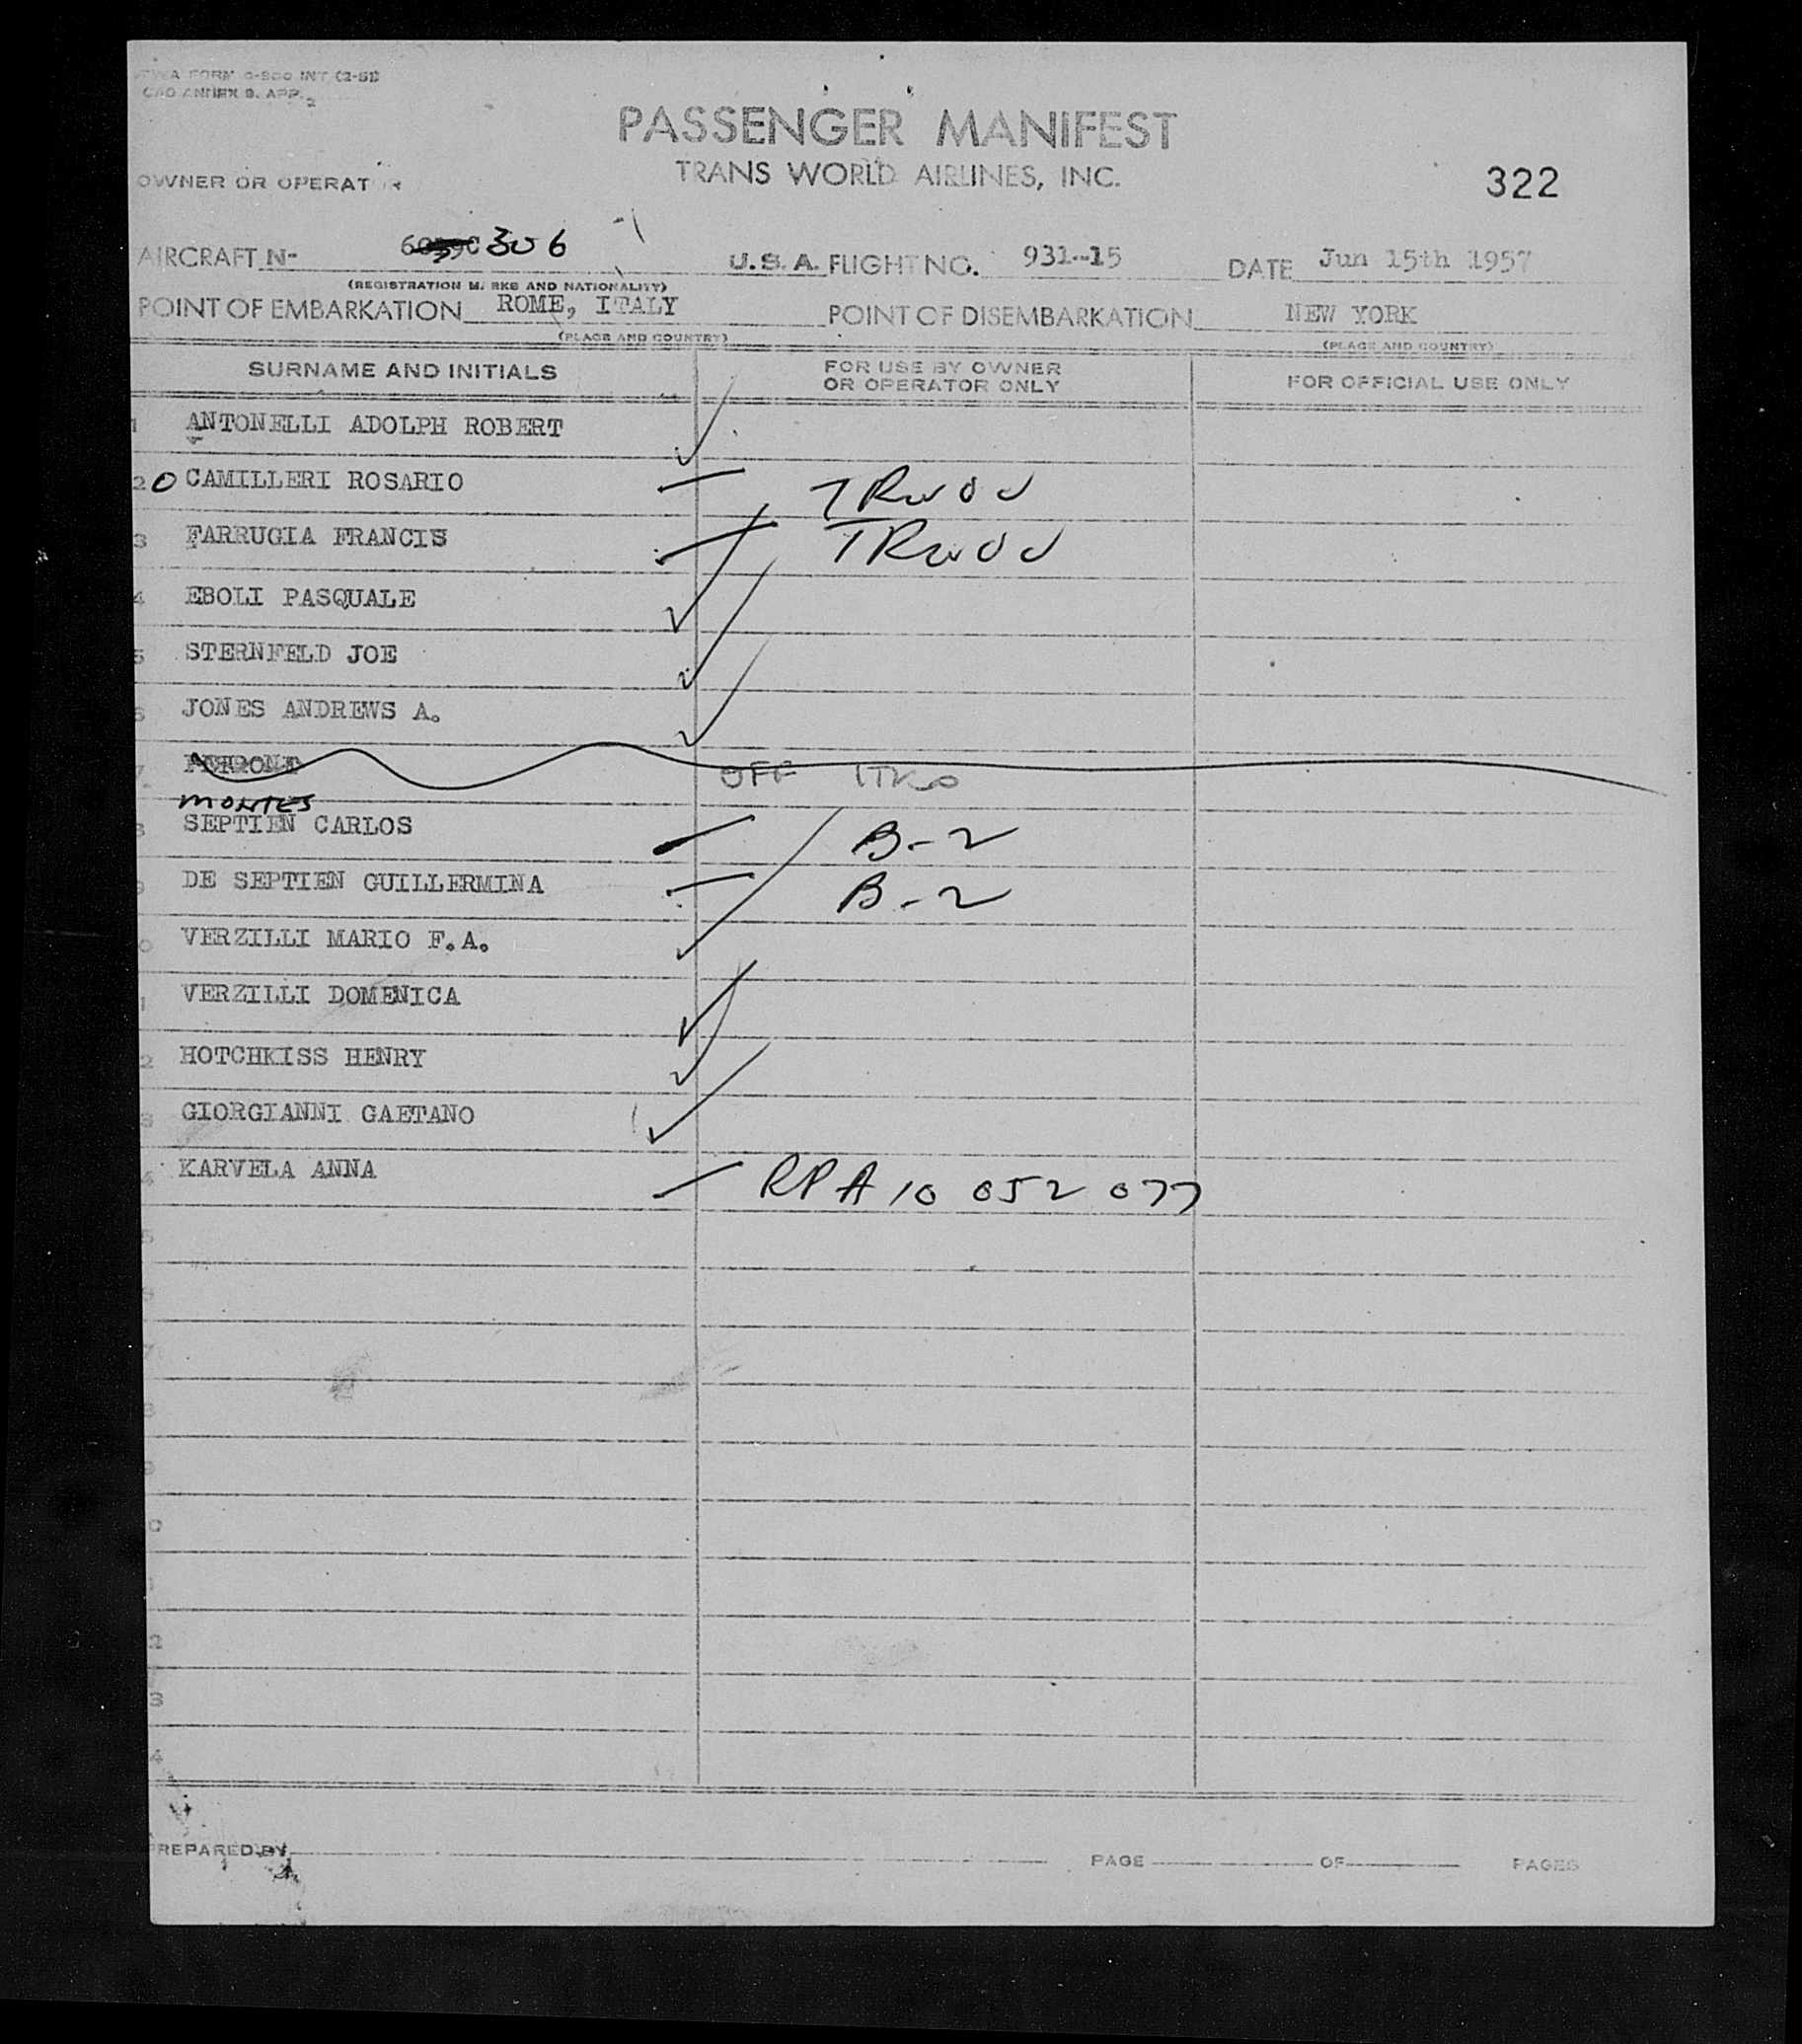 TWA FORM INT (2-51)
ANNEX 9. APP. 2
PASSENGER MANIFEST
TRANS WORLD AIRLINES, INC.
322
OWNER OR OPERATOR
AIRCRAFT N- 306 U.S.A. FLIGHT NO. 931--15 DATE Jun 15th 1957
(REGISTRATION MARKS AND NATIONALITY)
POINT OF EMBARKATION ROME, ITALY POINT OF DISEMBARKATION NEW YORK
(PLACE AND COUNTRY) (PLACE AND COUNTRY)
SURNAME AND INITIALS FOR USE BY OWNER OR OPERATOR ONLY FOR OFFICIAL USE ONLY
1 ANTONELLI ADOLPH ROBERT
2 O CAMILLERI ROSARIO TRWOV
3 FARRUGIA FRANCIS TRWOV
4 EBOLI PASQUALE
5 STERNFELD JOE
6 JONES ANDREWS A.
7 PERRONE OFF
MONTES
8 SEPTIEN CARLOS B-2
9 DE SEPTIEN GUILLERMINA B-2
0 VERZILLI MARIO F.A.
1 VERZILLI DOMENICA
2 HOTCHKISS HENRY
3 GIORGIANNI GAETANO
4 KARVELA ANNA RPA 10 052 077
5
6
7
8
9
0
1
2
3
4
PREPARED BY PAGE OF PAGES